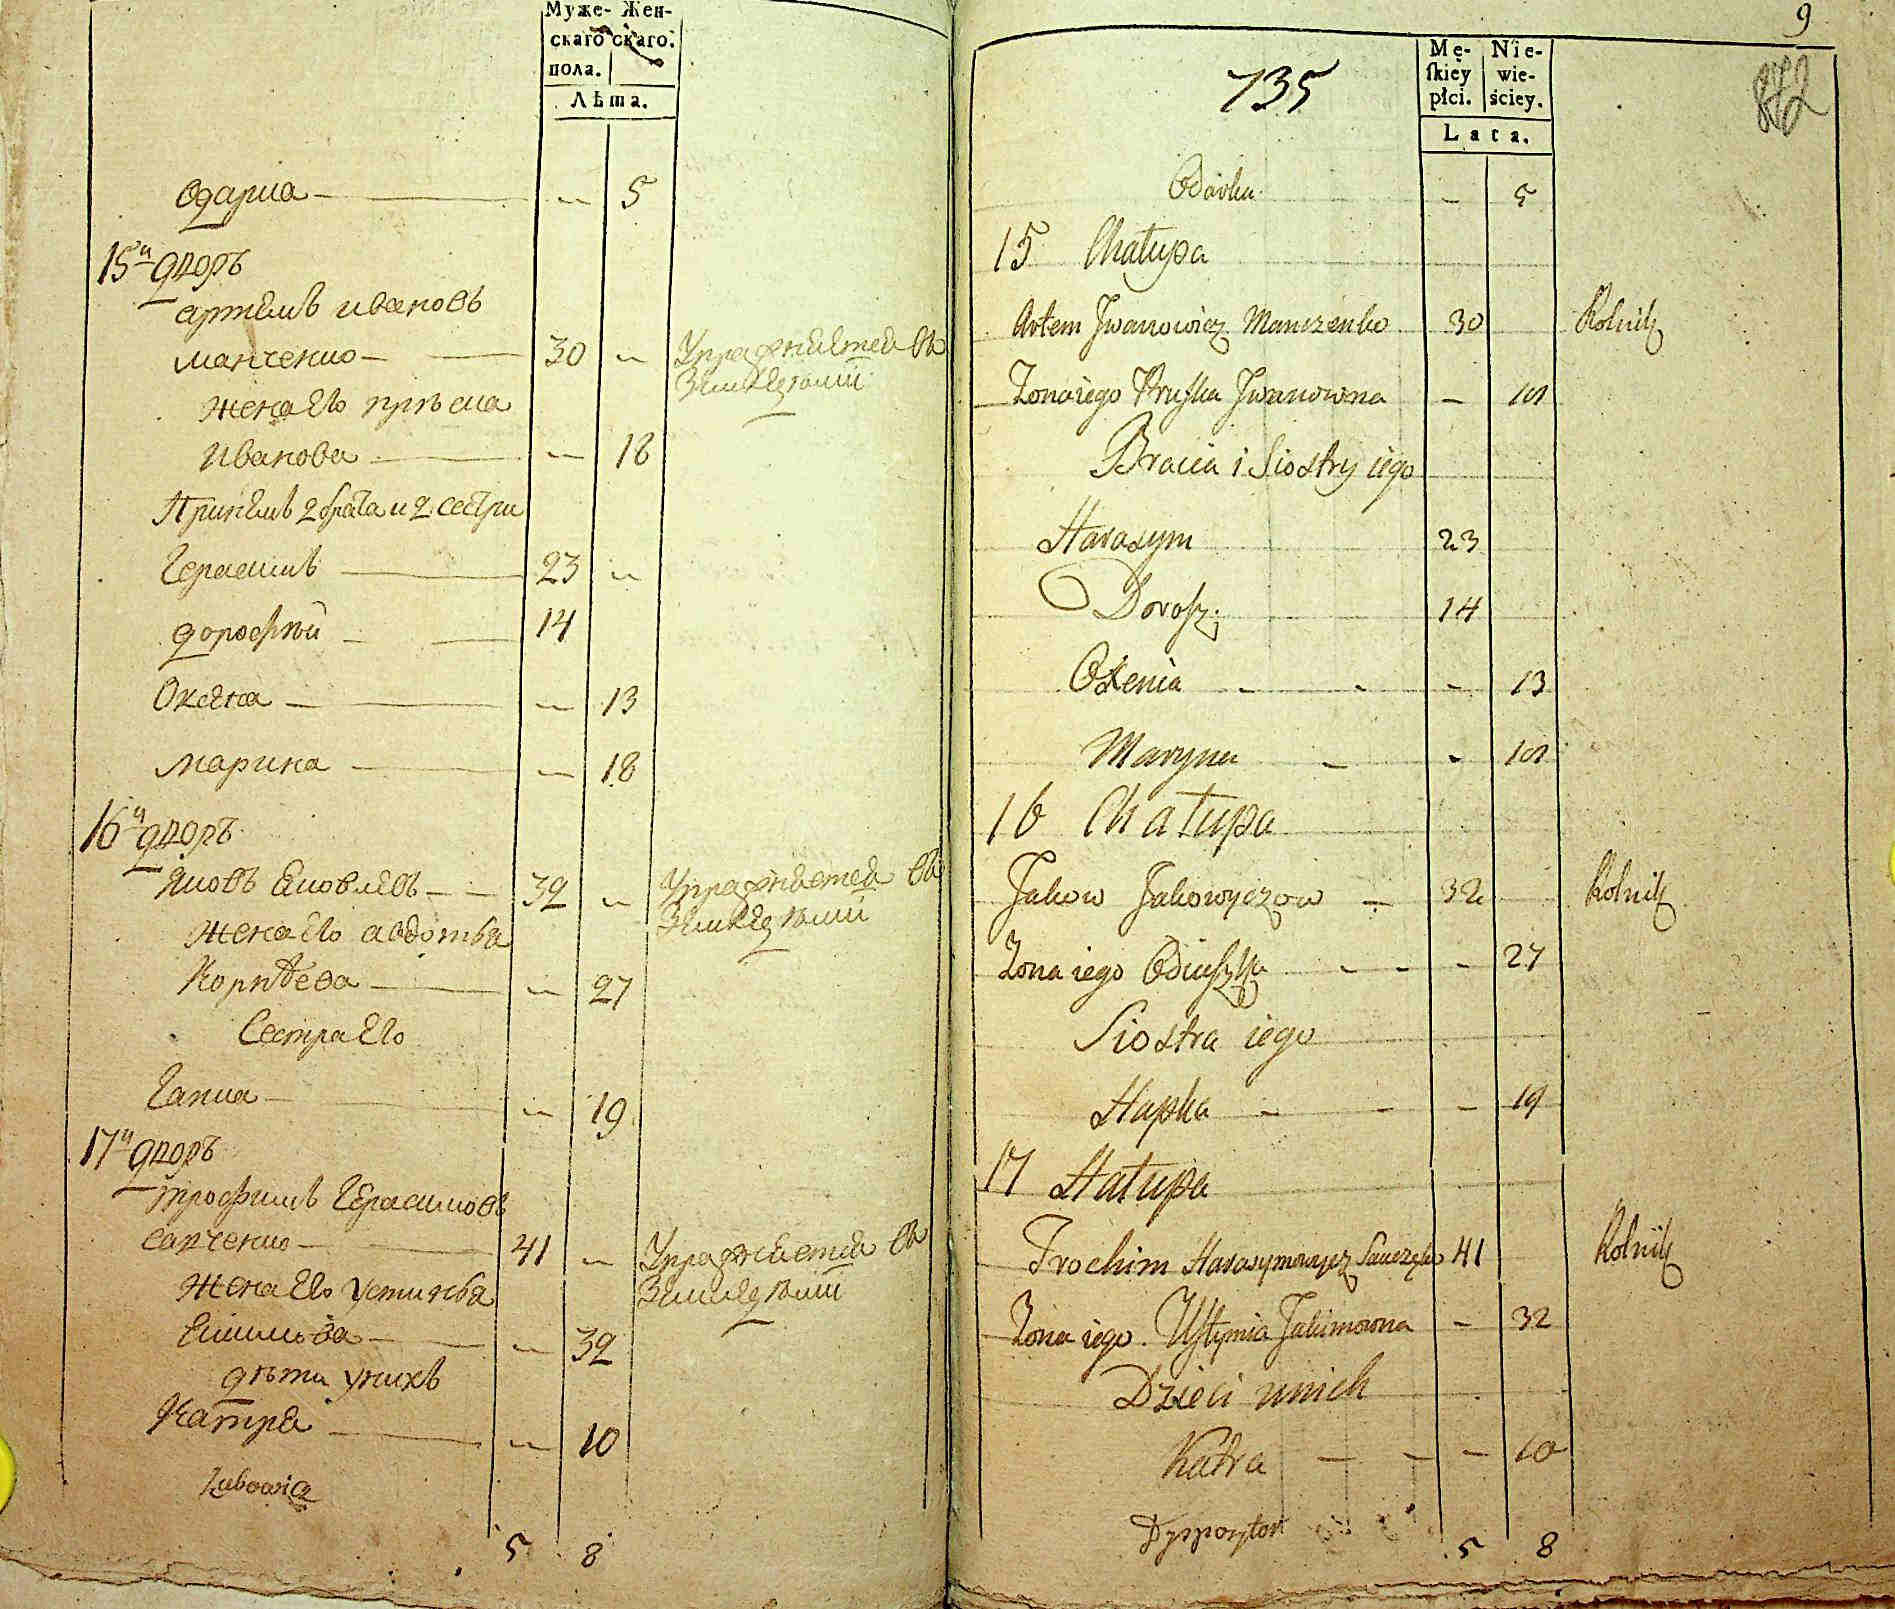 Муже- Жен-
скаго скаго.
пола.
Лѣта.
Одарка — " 5
15й дворъ
артемъ ивановъ
манченко — 30 "
Упражняется въ
Земледелии
жена Его приска
Иванова — " 18
При немъ 2 брата и 2 сестры
Герасимъ — 23 "
дорофей — 14
Оксена — " 13
марина — " 18
16й дворъ
Яковъ Яковлевъ — 32 "
Упражняется въ
Земледелии
жена Его авдотья
Корнеева — " 27
Сестра Его
Гапка — " 19
17й дворъ
трофимъ Герасимовъ
савченко — 41 "
Упражняется въ
Земледелии
жена Его устинья
Екимова — " 32
дети у нихъ
Катря — " 10
5 8
9
872
735
Mę- Nie-
ſkiey wie-
płci. ściey.
Lata.
Odarka - 5
15 Chałupa
Artem Jwanowicz Manczenko 30 Rolnik
Zona iego Pruska Jwanowna - 18
Bracia i Siostry iego
Harasym 23
Dorosz 14
Oxenia - 13
Maryna - 18
16 Chałupa
Jakow Jakowyczow - 32 Rolnik
Zona iego - 27
Siostra iego
Hapka - 19
17 Hałupa
Trochim Harasymowycz Sawczęko 41 Rolnik
Zona iego Ustymia Jakimowna - 32
Dzieci unich
Katra - 10
Dyspozytor
5 8